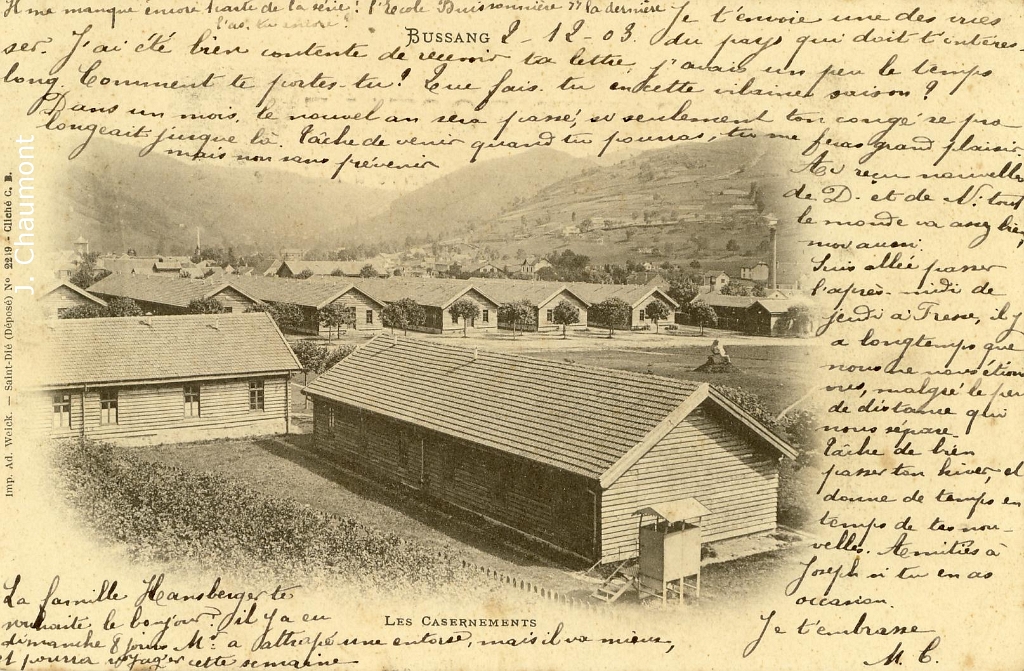 Il me manque encore 1 carte de la série : l'Ecole Buissonnière n° la dernière
l'as-tu encore ?
BUSSANG 2-12-03. Je t'envoie une des vues
du pays qui doit t'intéres-
ser. J'ai été bien contente de recevoir ta lettre, j'avais un peu le temps
long. Comment te portes-tu ? Que fais-tu en cette vilaine saison ?
Dans un mois, le nouvel an sera passé, si seulement ton congé se pro
longeait jusque là. Tâche de venir quand tu pourras, tu me feras grand plaisir.
mais non sans prévenir
Ai reçu nouvelles
de D. et de N. tout
le monde va assez bien,
moi aussi.
Suis allée passer
l'après-midi de
jeudi à Fresse, il y
a longtemps que
nous ne nous étions
vues, malgré le peu
de distance qui
nous sépare.
Tâche de bien
passer ton hiver, et
donne de temps en
temps de tes nou-
velles. Amitiés à
Joseph si tu en as
occasion.
Je t'embrasse
M C.
La famille Hansberger te
souhaite le bonjour. Il y a eu
dimanche 8 jours Mr. a attrapé une entorse, mais il va mieux,
et pourra voyager cette semaine
LES CASERNEMENTS
Imp. Ad. Weick. — Saint-Dié (Déposé) No. 2219 - Cliché C. B.
J. Chaumont